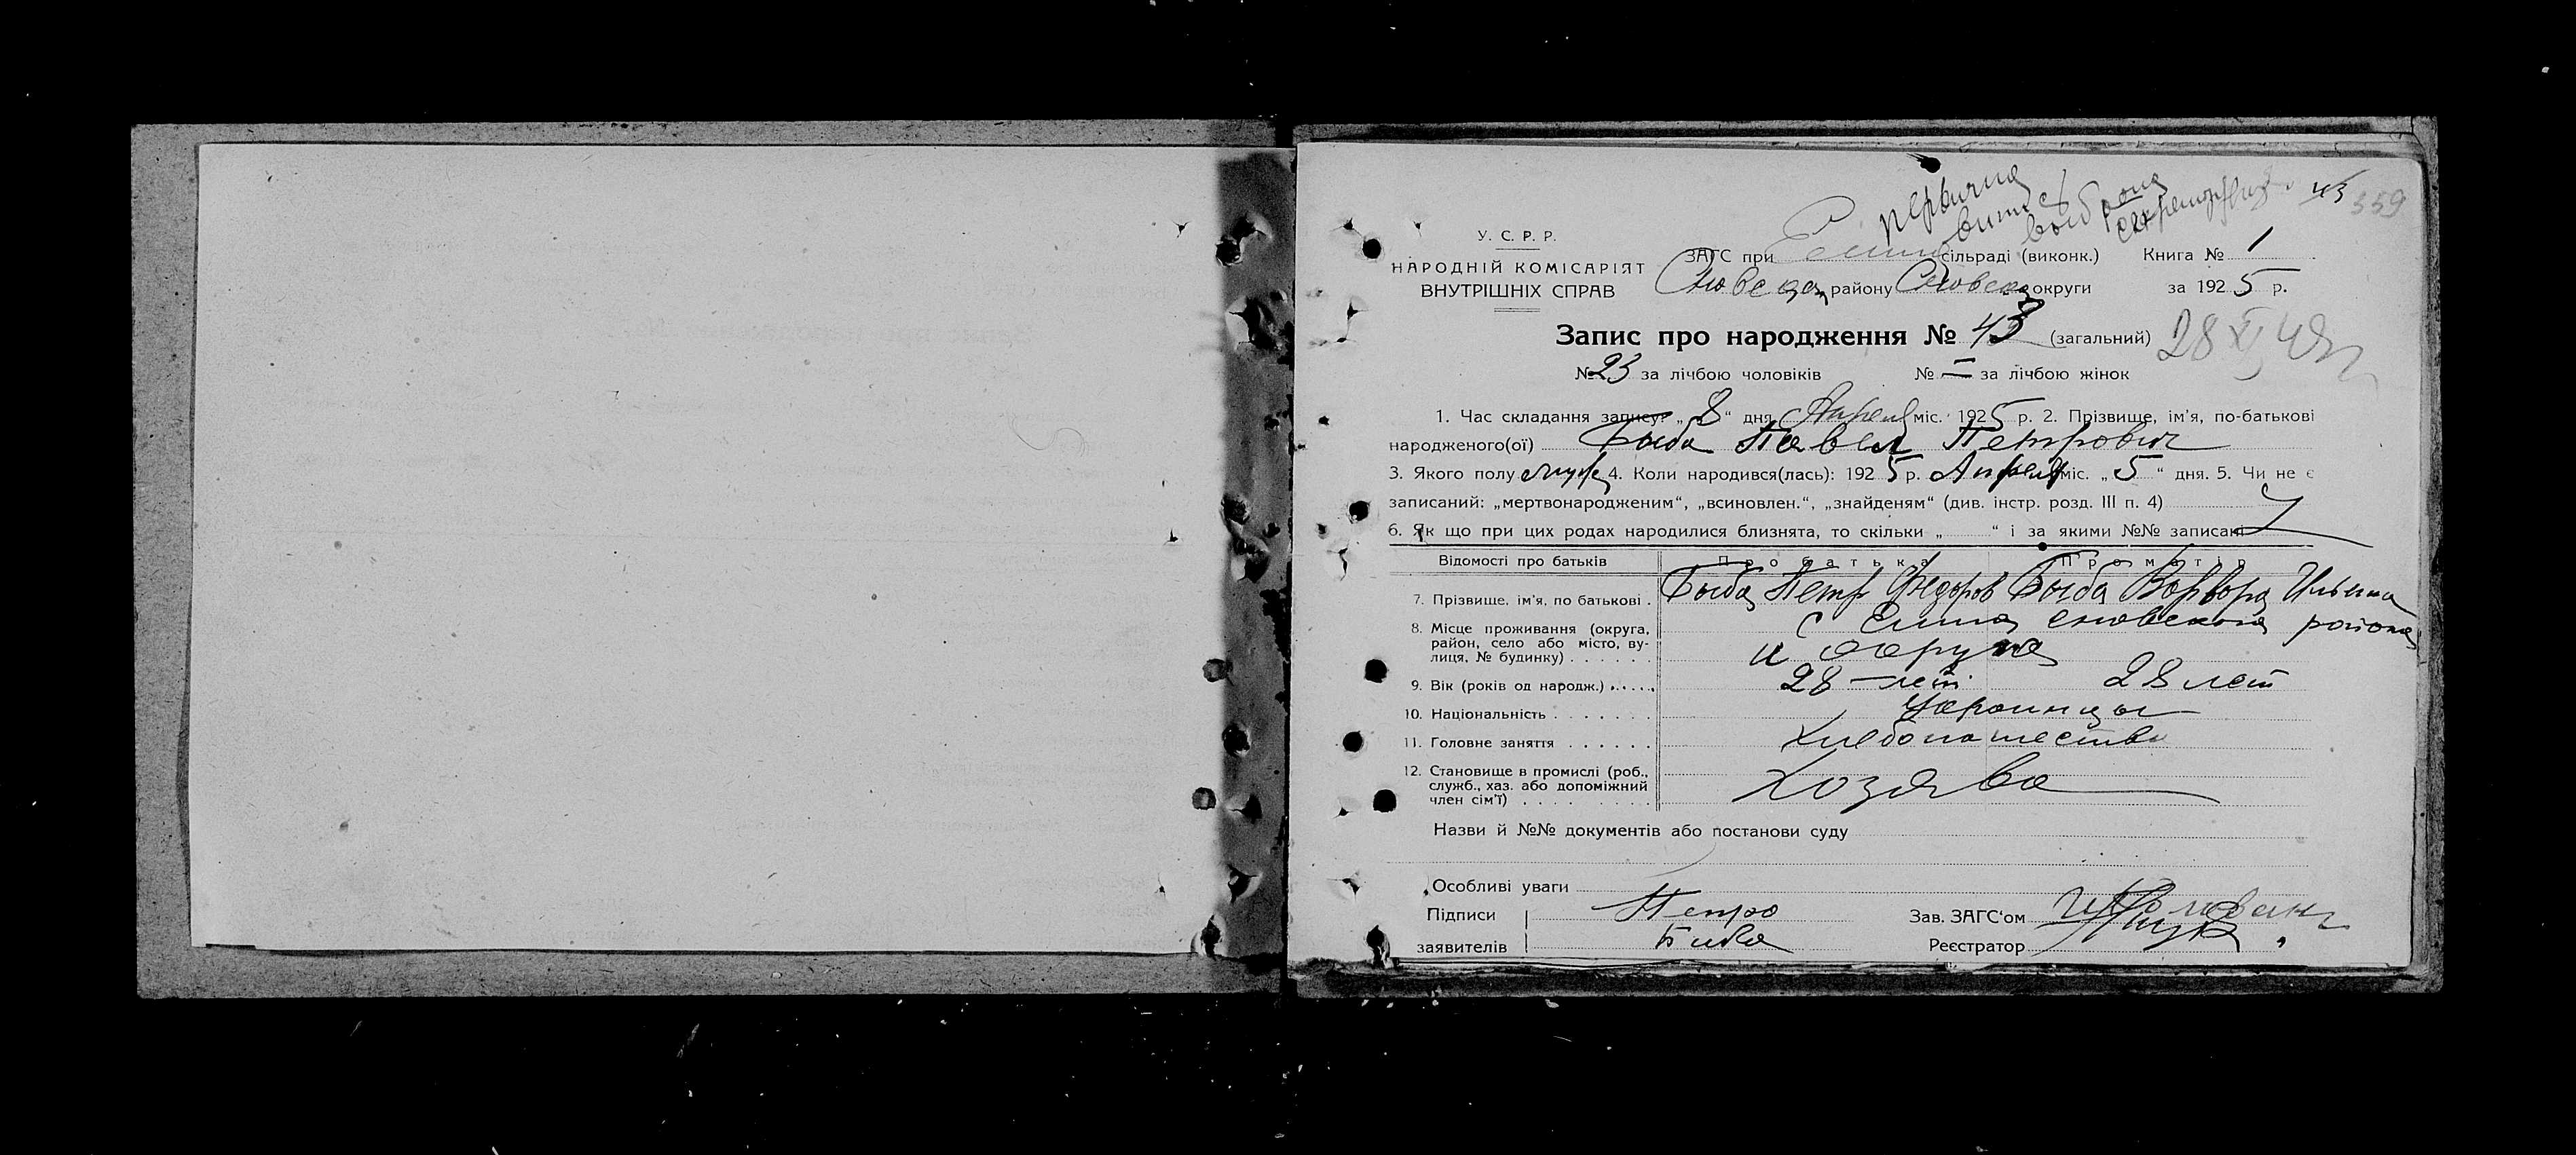 первична
43 359
У. С. Р. Р.
НАРОДНІЙ КОМІСАРІЯТ
ВНУТРІШНІХ СПРАВ
ЗАГС при сільраді (виконк.) Книга № 1
району округи за 1925 р.
Запис про народження № 43 (загальний)
28 XI 49 г
№ 23 за лічбою чоловіків № — за лічбою жінок
1. Час складання запису: „ 8 “ дня Апреля міс. 1925 р. 2. Прізвище, ім'я, по-батькові
народженого(ої) Быба Павел Петрович
3. Якого полу муж 4. Коли народився(лась): 1925 р. Апреля міс. „ 5 “ дня. 5. Чи не є
записаний: „мертвонародженим“, „всиновлен.“, „знайденям“ (див. інстр. розд. III п. 4)
6. Як що при цих родах народилися близнята, то скільки „ “ і за якими №№ записані
Відомості про батьків Про батька Про матір
7. Прізвище, ім'я, по батькові . Быба Петр Федоров Быба Варвара Ильина
8. Місце проживання (округа, с Сновского района
район, село або місто, ву-
лиця, № будинку) . . . . . . и округа
9. Вік (років од народж.) . . . . . 28 — лет 28 лет
10. Національність . . . . . . . Украинцы
11. Головне заняття . . . . . . Хлебопашество
12. Становище в промислі (роб.,
служб., хаз. або допоміжний Хозяева
член сім'ї) . . . . . . . . .
Назви й №№ документів або постанови суду
Особливі уваги
Підписи Петро Зав. ЗАГС'ом
заявителів Биба Реєстратор